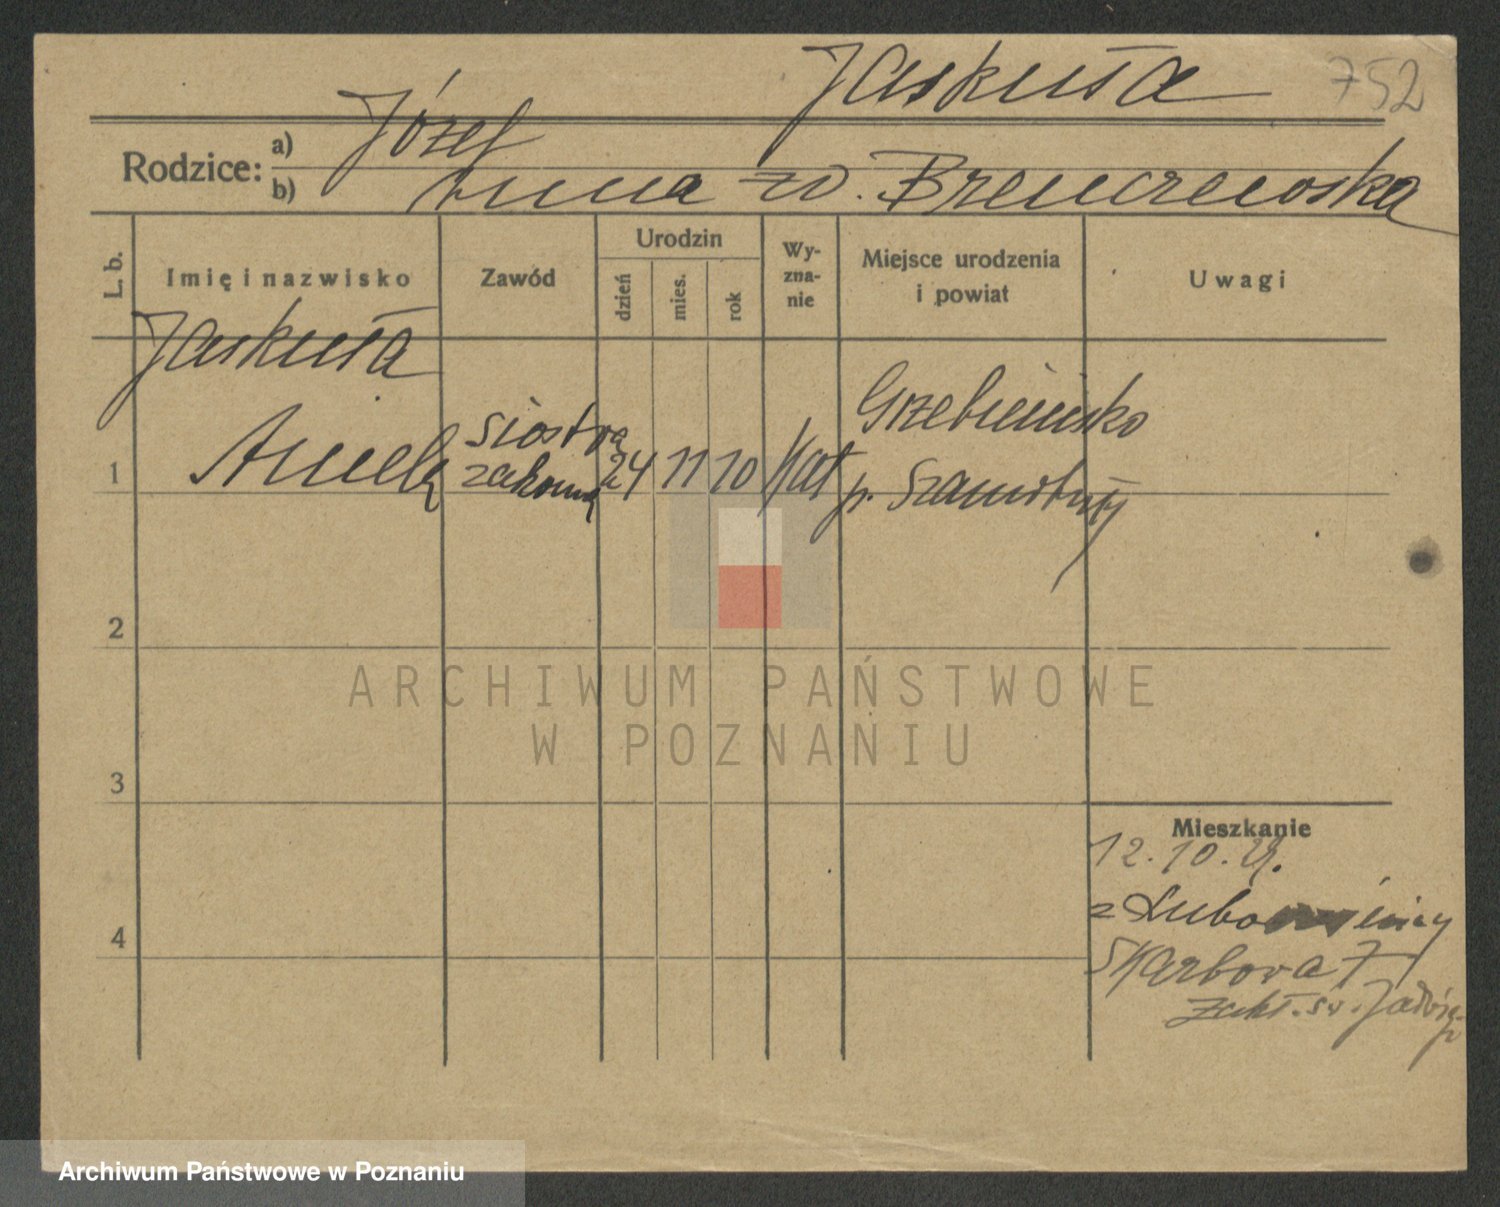 Jaskuła 752
Rodzice:
a) Józef
b) Anna
L. b.
Imię i nazwisko
Zawód
Urodzin
dzień
mies.
rok
Wy-
zna-
nie
Miejsce urodzenia
i powiat
Uwagi
Jaskuła
1 Aniela
siostra
zakonna
24 11 10
kat
Grzebienisko
p. Szamotuły
2
3
4
Mieszkanie
12.10.
z
Skarbova 7
Zakł. św. Jadwigi
ARCHIWUM PAŃSTWOWE
W POZNANIU
Archiwum Państwowe w Poznaniu